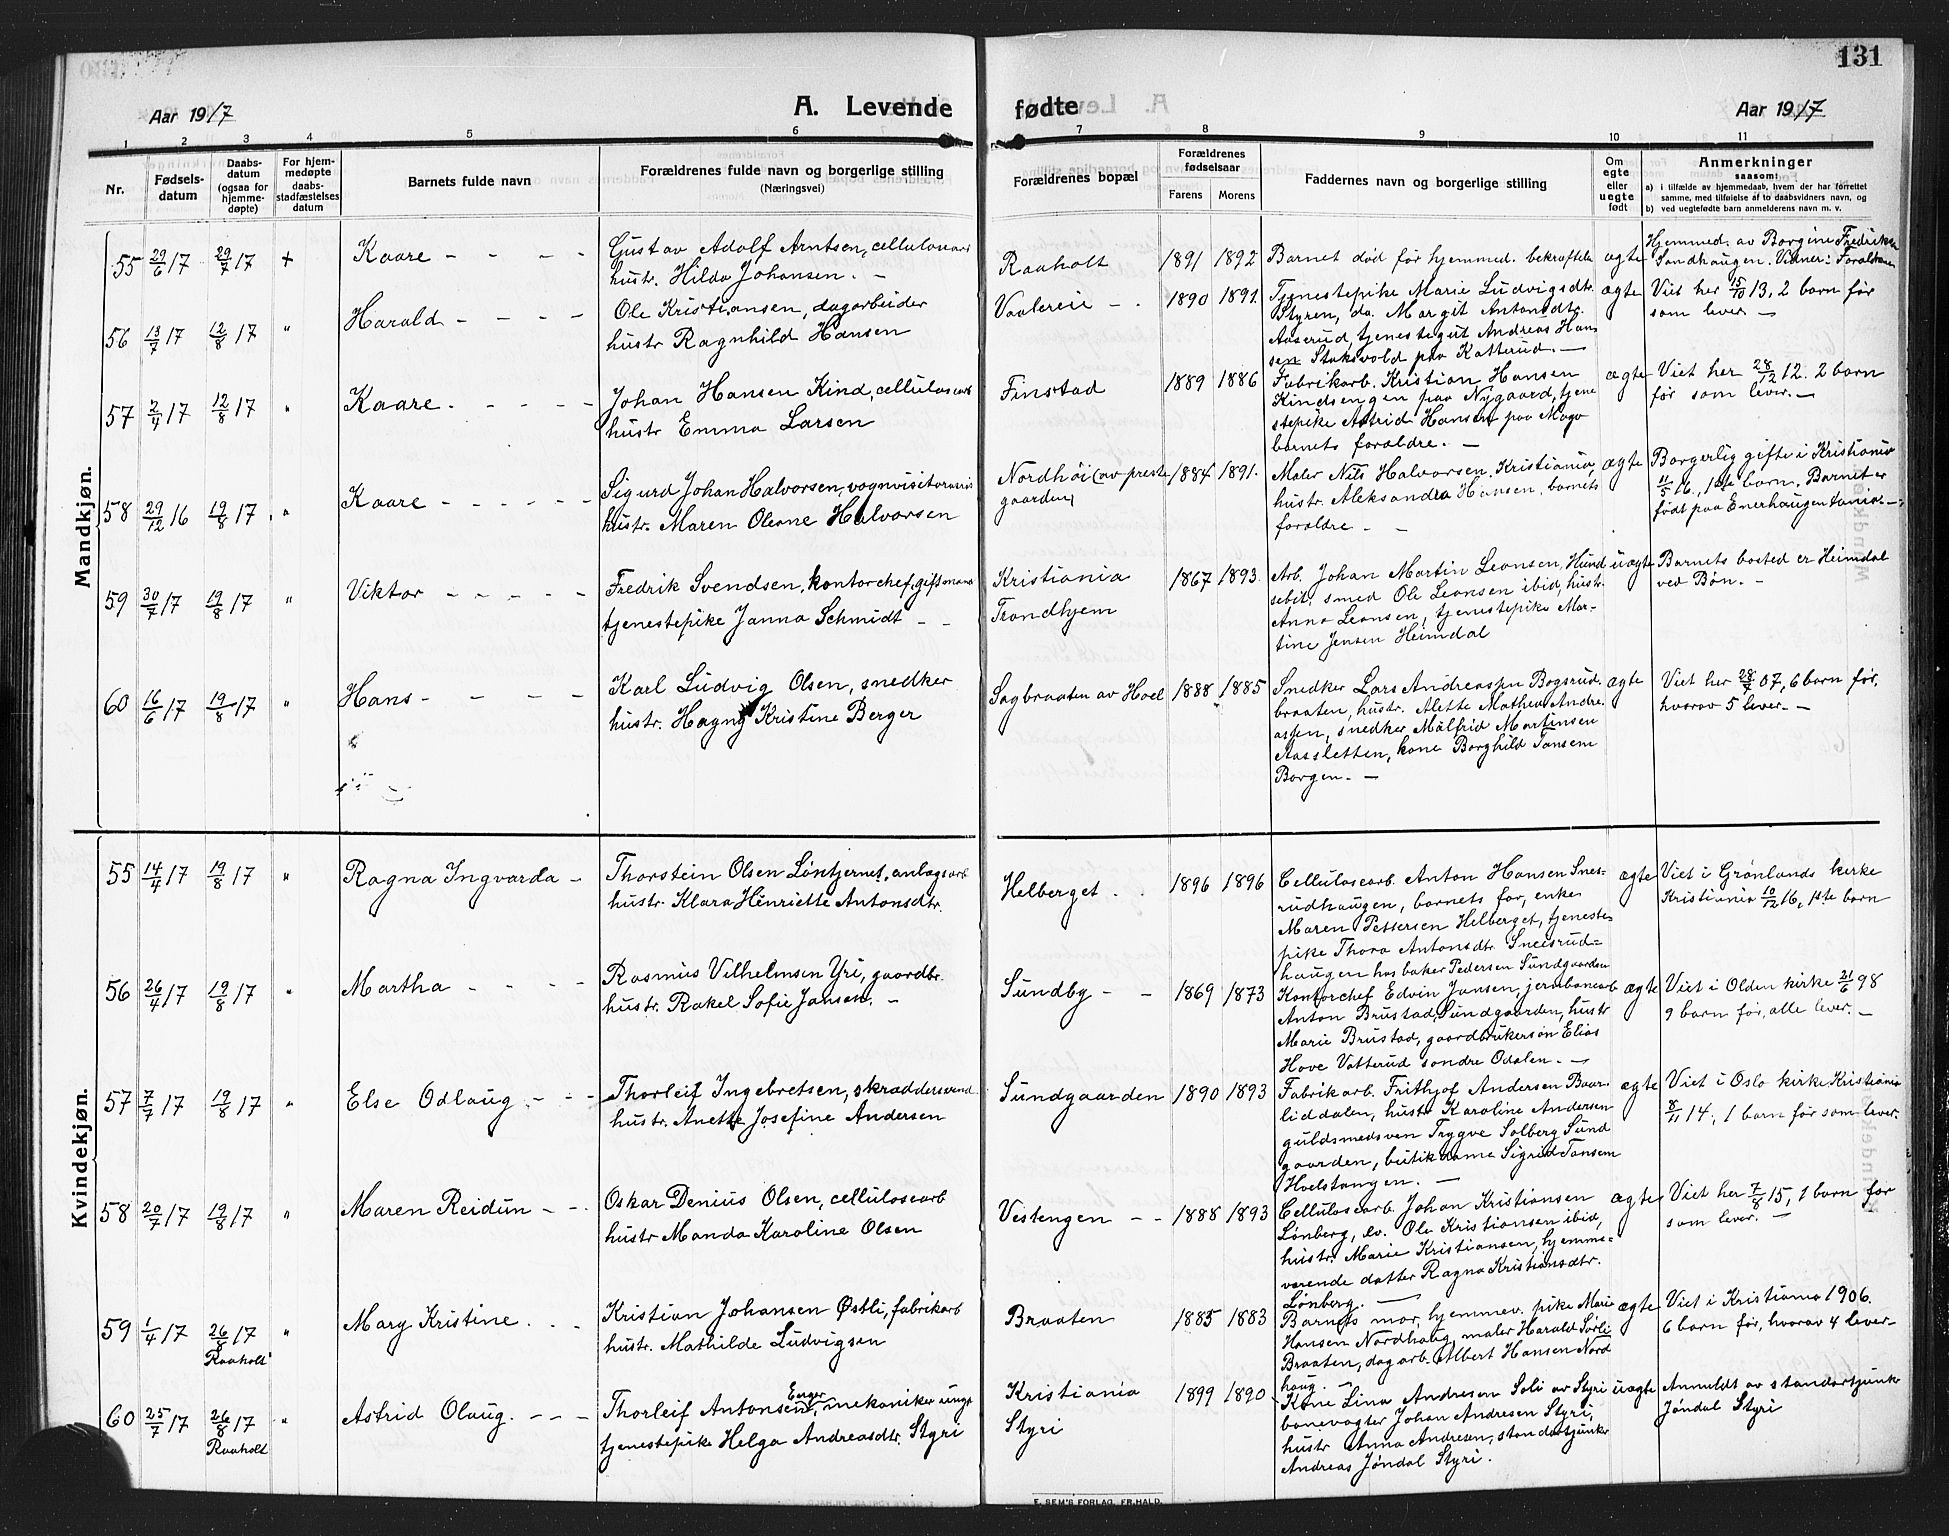 131
Aar 1917
A. Levende
fødte
Aar 1917
1 2 3 4 5 6 7 8 9 10 11
Nr.
Fødsels-
datum
Daabs-
datum
(ogsaa for
hjemme-
døpte)
For hjem-
medøpte
daabs-
stadfæstelses
datum
Barnets fulde navn
Forældrenes fulde navn og borgerlige stilling
(Næringsvei)
Forældrenes bopæl
Forældrenes
fødselsaar
Farens Morens
Faddernes navn og borgerlige stilling
Om
egte
eller
uegte
født
Anmerkninger
saasom:
a) i tilfælde av hjemmedaab, hvem der har forrettet
samme, med tilføielse af to daabsvidners navn, og
b) ved uegtefødte barn anmelderens navn m. v.
Mandkjøn.
55 29/6 17 29/7 17 + Kaare - - - -
Gustav Adolf Arntsen, cellulosearb
hustr. Hilda Johansen. -
Raaholt 1891 1892
Barnet død før hjemmed. bekræftelse
ægte
Hjemmed. av Borgine Fredrikke
Sandhaugen. Vidner: Forældrene
56 13/7 17 12/8 17 " Harald - - - -
Ole Kristiansen, dagarbeider
hustr Ragnhild Hansen
Vaalereie - . 1890 1891.
Tjenestepike Marie Ludvigsdtr.
Styren, do. Margit Antonsdtr.
Aaserud, tjenestegut Andreas Han
sen Stoksvold paa Katterud. -
ægte
Viet her 15/10 13, 2 barn før
som lever -
57 2/4 17 12/8 17 " Kaare. - - - -
Johan Hansen Kind, cellulosearb
hustr Emma Larsen
Finstad 1889 1886
Fabrikarb. Kristian Hansen
Kindsengen paa Nygaard, tjene
stepike Astrid Hansen paa Mago
barnets forældre. -
ægte
Viet her 28/12 12. 2 barn
før som lever. -
58 29/12 16 19/8 17. " Kaare - - - -
Sigurd Johan Halvorsen, vognvisitør
hustr. Maren Olerne Halvorsen
Nordhöi (av preste
gaarden) 1884 1891.
Maler Nils Halvorsen, Kristiania,
hustr. Aleksandra Hansen, barnets
forældre - -
ægte
Borgerlig gifte i Kristiania
11/5 16., 1ste barn. Barnet er
født paa Enerhaugen -
59 30/7 17 19/8 17 " Viktor - - - - -
Fredrik Svendsen, kontorchef, gift mand
tjenestepike Janna Schmidt - -
Kristiania
Trondhjem 1867 1893.
Arb. Johan Martin Leonsen, Hund
sebit, smed Ole Leonsen ibid, hustr.
Anna Leonsen, tjenestepike Mar-
tine Jensen Heimdal
uægte
Barnets bosted er Heimdal
ved Bön. -
60 16/6 17 19/8 17 " Hans - - - - -
Karl Ludvig Olsen, snedker
hustr. Hagny Kristine Berger
Sagbraaten av Hoel 1888 1885
Snedker Lars Andreassen Bogsrud.
braaten, hustr. Alette Mathea Andre.
assen, snedker Målfrid Martinsen
Aassletten, kone Borghild Jansen
Borgen. -
ægte
Viet her 28/7 07, 6 barn før,
hvorav 5 lever. -
Kvindekjøn.
55 14/4 17 19/8 17 " Ragna Ingvarda -
Thorstein Olsen Løntjernet, anlægsarb
hustr. Klara Henriette Antonsdtr.
Helberget . . 1896 1896
Cellulosearb. Anton Hansen Snes-
rudhaugen, barnets far, enke
Maren Pettersen Helberget, tjeneste
pike Thora Antonsdtr Sneisrud-
haugen hos baker Pedersen Sundgaarden
ægte
Viet i Grønlands kirke
Kristiania 10/12 16, 1ste barn
56 26/4 17 19/8 17 " Martha - - - -
Rasmus Vilhelmsen Yri, gaardbr.
hustr. Rakel Sofie Jansen. -
Sundby - - 1869 1873
Kontorchef Edvin Jansen, jernbanearb
Anton Brustad, Sundgaarden, hustr
Marie Brustad, gaardbrukersøn Elias
Hove Vatterud søndre Odalen. -
ægte
Viet i Olden kirke 21/6 98
9 barn før, alle lever. -
57 7/7 17 19/8 17 " Else Odlaug - - -
Thorleif Ingebretsen, skræddersvend
hustr. Anette Josefine Andersen
Sundgaarden 1890 1893
Fabrikarb. Frithjof Andersen Baar-
liddalen, hustr Karoline Andersen
guldsmedsven Trygve Solberg Sund
gaarden, butikdame Sigrid Jansen
Hoelstangen. -
ægte
Viet i Oslo kirke Kristiania
8/11 14, 1 barn før som lever.
58 20/7 17 19/8 17 " Maren Reidun - -
Oskar Denius Olsen, cellulosearb
hustr Manda Karoline Olsen
Vestengen - - 1888 1893
Cellulosearb. Johan Kristiansen
Lønberg, do. Ole Kristiansen ibid,
hustr. Marie Kristiansen, hjemme-
værende datter Ragna Kristiansdtr.
Lønberg. -
ægte
Viet her 7/8 15, 1 barn før
som lever. -
59 1/4 17 26/8 17 " Mary Kristine. . .
Raaholt
Kristian Johansen Østli, fabrikarb
hustr. Mathilde Ludvigsen
Braaten 1885 1883
Barnets mor, hjemmev. pike Marie
Hansen Nordhaug, maler Harald Sørli
Braaten, dagarb. Albert Hansen Nord
haug. -
ægte
Viet i Kristiania 1906.
6 barn før, hvorav 4 lever-
60 25/7 17 26/8 17 " Astrid Olaug. - - -
Raaholt
Thorleif Antonsen Enger, mekaniker ungk
tjenestepike Helga Andreasdtr. Styri
Kristiania
Styri 1899 1890
Kone Lina Andresen Soli av Styri
banevogter Johan Andresen Styri,
hustr Anna Andresen, standartjunker
Andreas Jøndal Styri.
uægte
Anmeldt av standartjunk
Jøndal Styri
E. SEM'S FORLAG, FR.HALD.